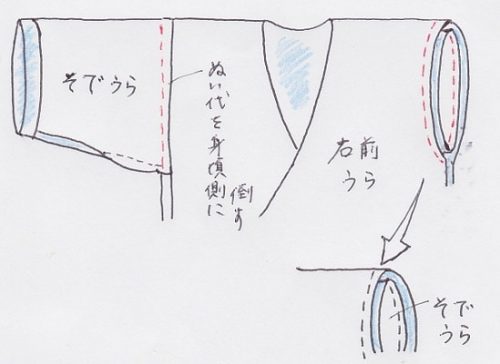 そでうら
ぬい代を身頃側に
倒す
右前
うら
そで
うら